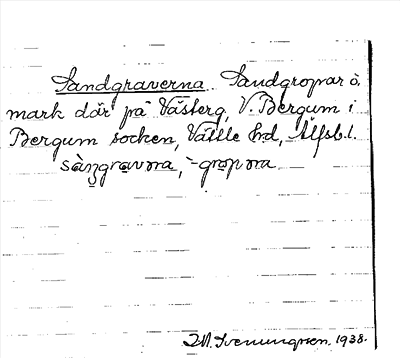 Sandgraverna Sandgropar å
mark där på Västerg, V. Bergum i
Bergum socken, Vättle hd, Älfsb. l.
sàn̥gravɷrna, -gropɷrna
1938.